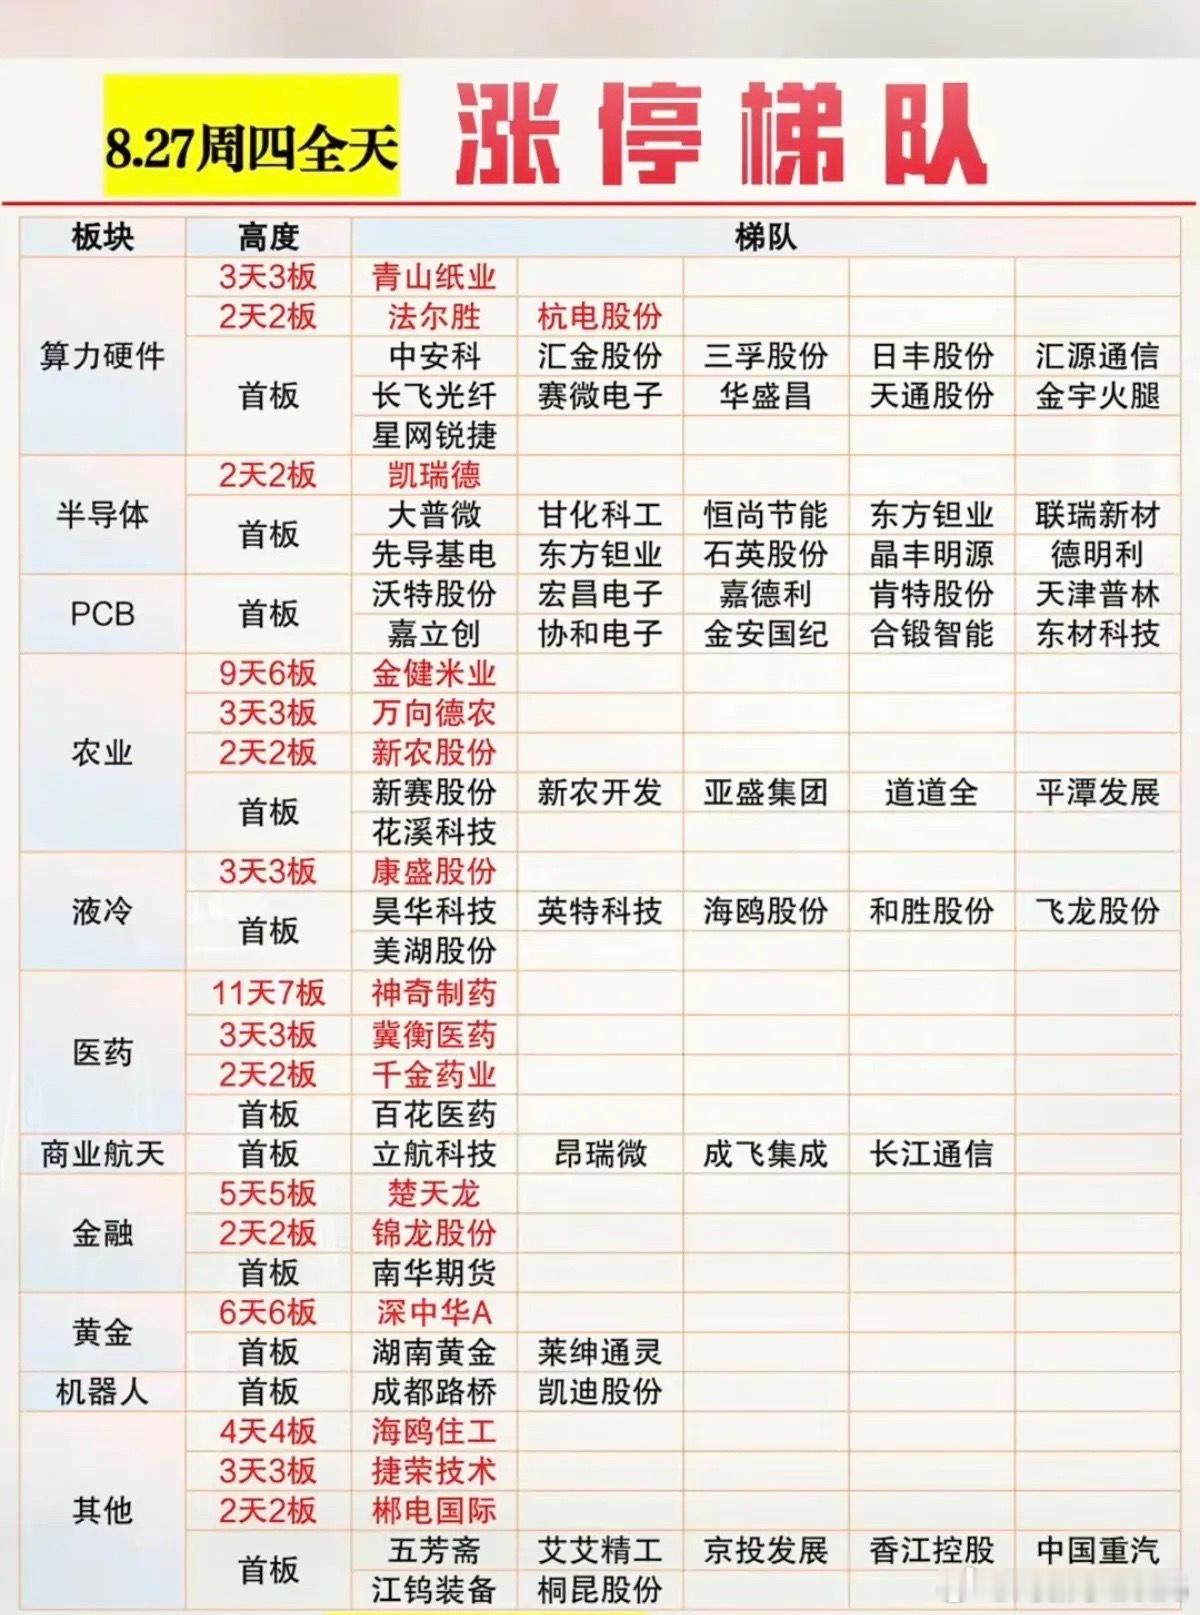 8.27周四全天 涨停梯队
板块 高度 梯队
算力硬件 3天3板 青山纸业
2天2板 法尔胜 杭电股份
首板 中安科 汇金股份 三孚股份 日丰股份 汇源通信
长飞光纤 赛微电子 华盛昌 天通股份 金宇火腿
星网锐捷
半导体 2天2板 凯瑞德
首板 大普微 甘化科工 恒尚节能 东方钽业 联瑞新材
先导基电 东方钽业 石英股份 晶丰明源 德明利
PCB 首板 沃特股份 宏昌电子 嘉德利 肯特股份 天津普林
嘉立创 协和电子 金安国纪 合锻智能 东材科技
农业 9天6板 金健米业
3天3板 万向德农
2天2板 新农股份
首板 新赛股份 新农开发 亚盛集团 道道全 平潭发展
花溪科技
液冷 3天3板 康盛股份
首板 昊华科技 英特科技 海鸥股份 和胜股份 飞龙股份
美湖股份
医药 11天7板 神奇制药
3天3板 冀衡医药
2天2板 千金药业
首板 百花医药
商业航天 首板 立航科技 昂瑞微 成飞集成 长江通信
金融 5天5板 楚天龙
2天2板 锦龙股份
首板 南华期货
黄金 6天6板 深中华A
首板 湖南黄金 莱绅通灵
机器人 首板 成都路桥 凯迪股份
其他 4天4板 海鸥住工
3天3板 捷荣技术
2天2板 郴电国际
首板 五芳斋 艾艾精工 京投发展 香江控股 中国重汽
江钨装备 桐昆股份